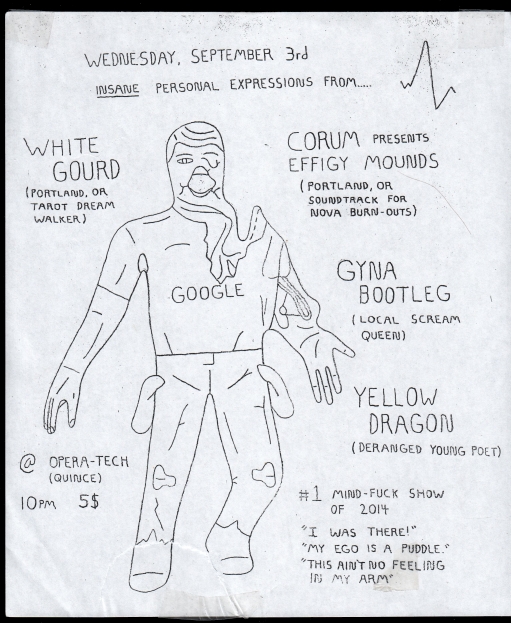 WEDNESDAY, SEPTEMBER 3rd
INSANE PERSONAL EXPRESSIONS FROM.....
WHITE
GOURD
(PORTLAND, OR
TAROT DREAM
WALKER)
CORUM PRESENTS
EFFIGY MOUNDS
(PORTLAND, OR
SOUNDTRACK FOR
NOVA BURN-OUTS)
GOOGLE
GYNA
BOOTLEG
(LOCAL SCREAM
QUEEN)
YELLOW
DRAGON
(DERANGED YOUNG POET)
@ OPERA-TECH
(QUINCE)
10PM 5$
#1 MIND-FUCK SHOW
OF 2014
"I WAS THERE!"
"MY EGO IS A PUDDLE."
"THIS AIN'T NO FEELING
IN MY ARM"